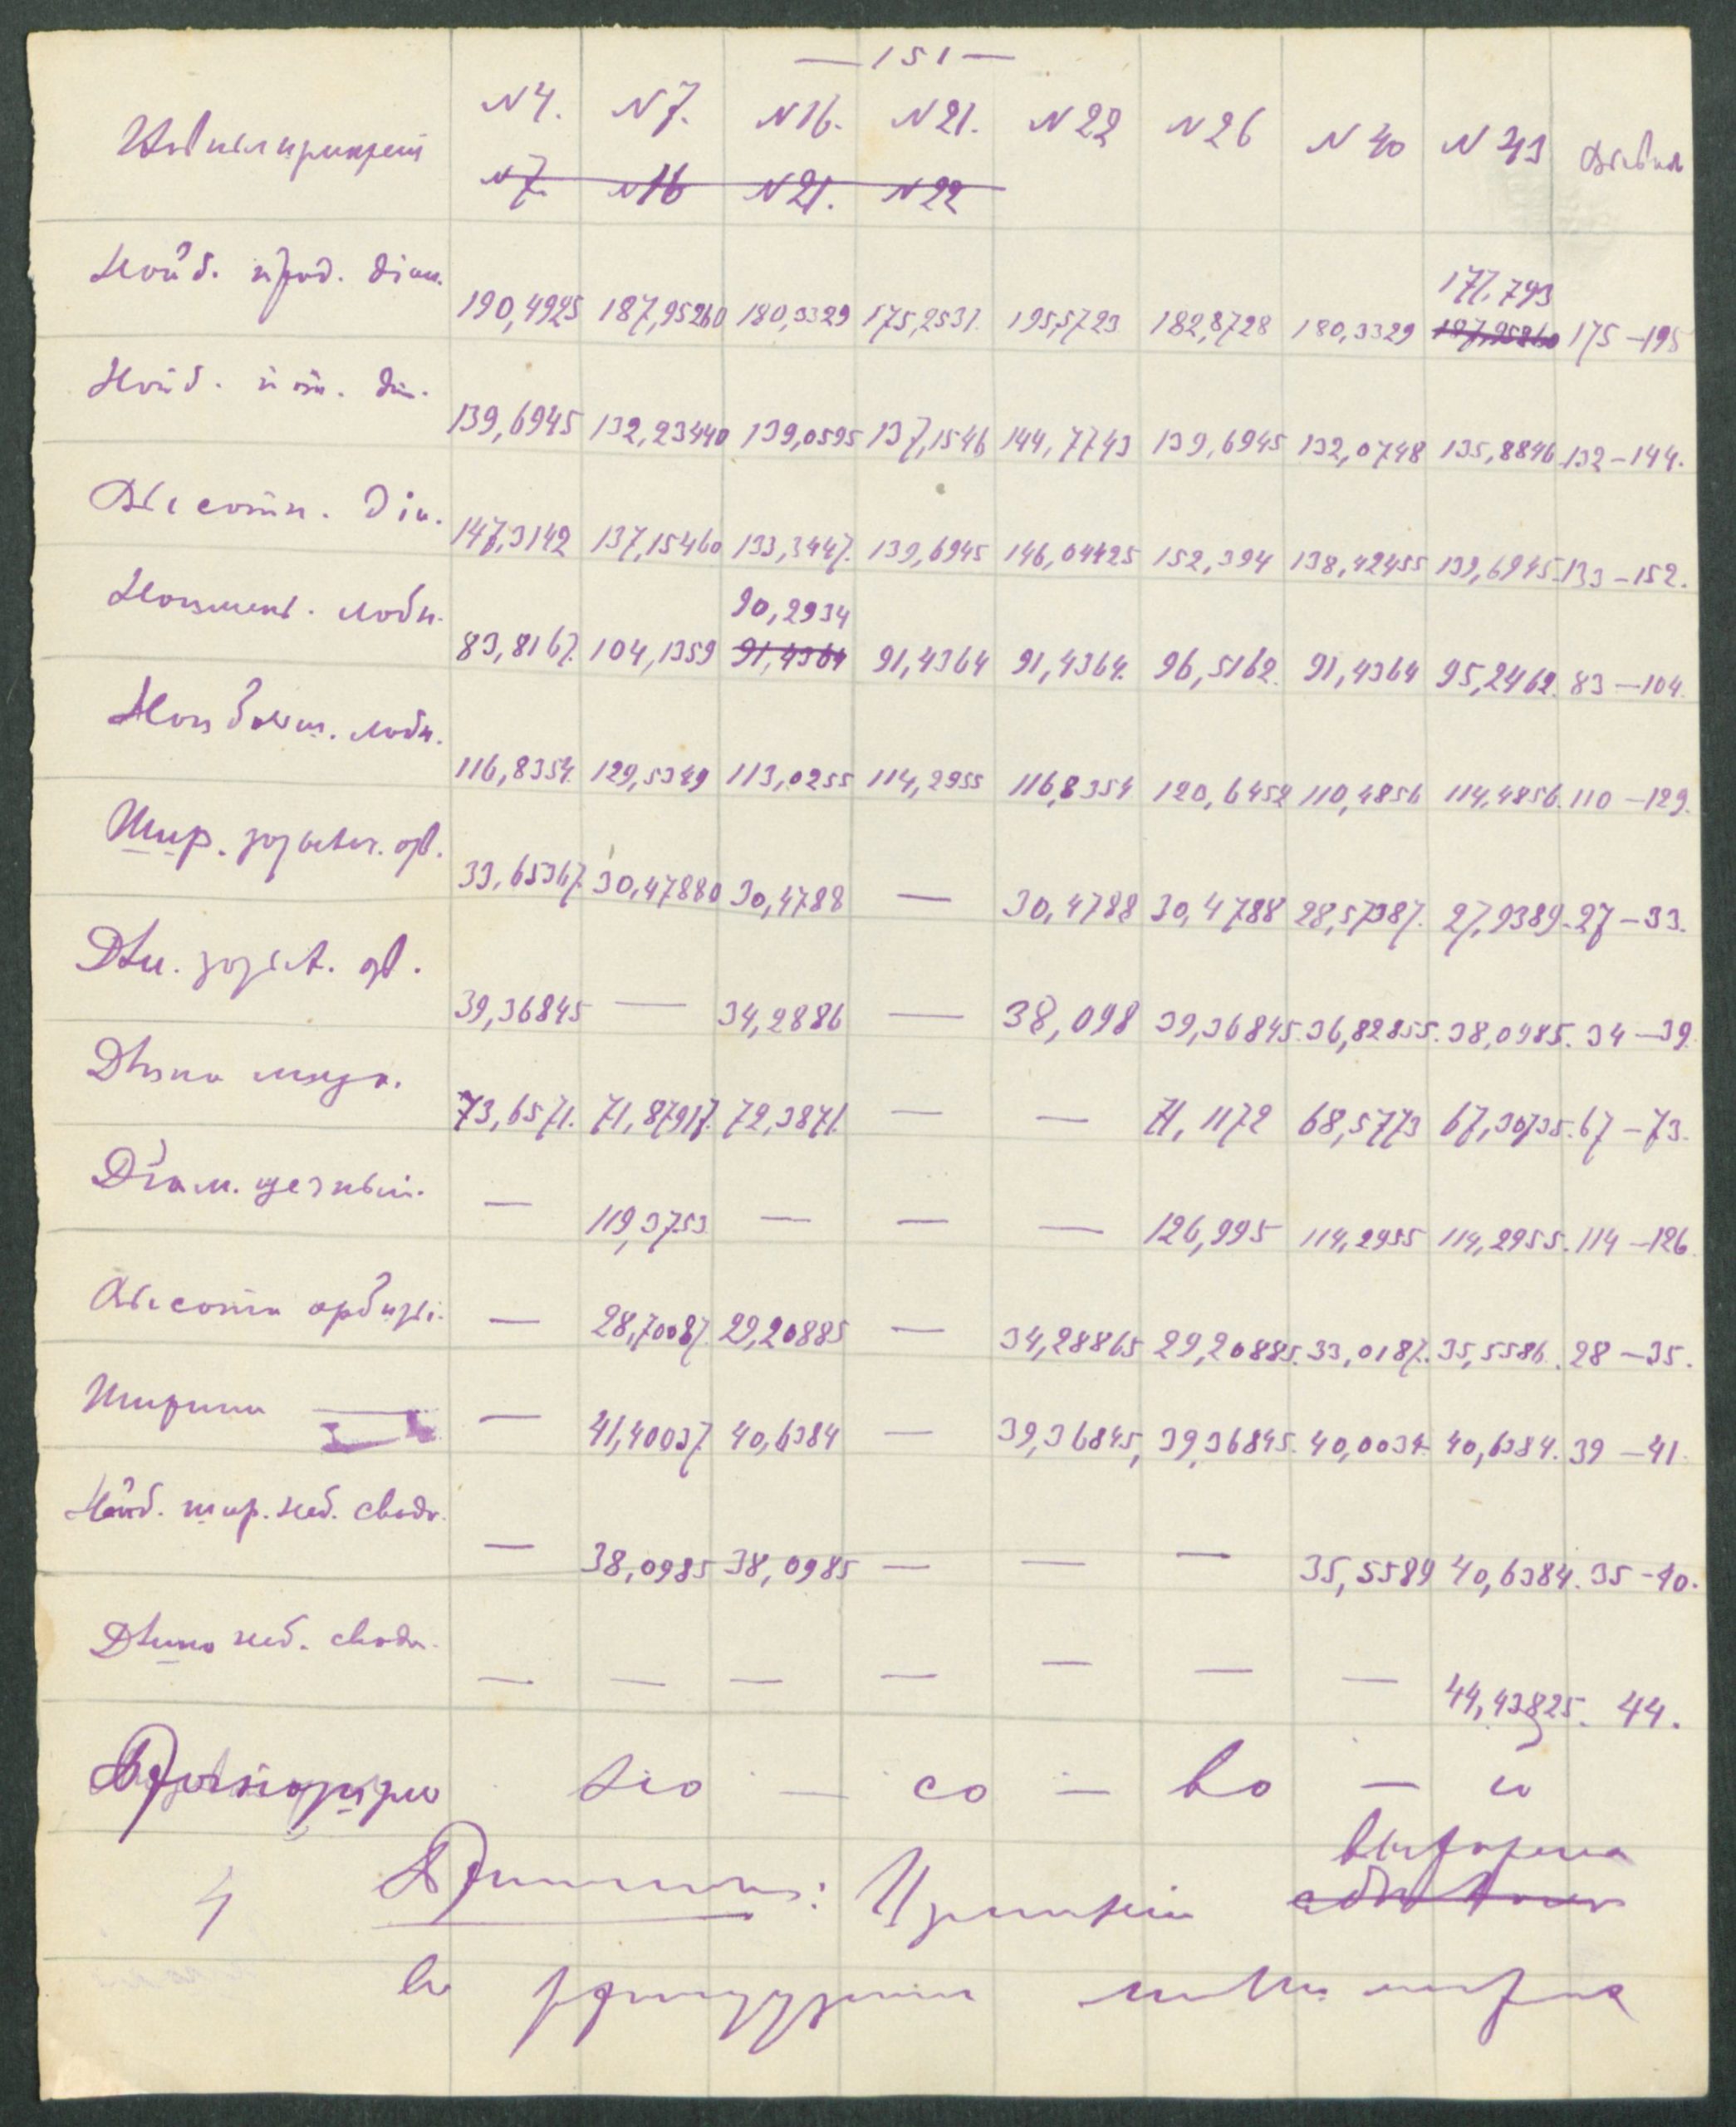 — 151 —
N 4. N 7. N 16. N 21. N 22 N 26 N 40 N 43
N 7. N 16 N 21. N 22
Наиб. прод. діам.
177,793
190,4925 187,95260 180,3329 175,2531. 195,5723 182,8728 180,3329 187,95260 175 — 195
Наиб. діам.
139,6945 132,23440 139,0595 137,1546 144,7743 139,6945 132,0748 135,8846 132 — 144.
Высотн. Діа.
147,3142 137,15460 133,3447. 139,6945 146,04425 152,394 138,42455 139,6945. 133 — 152.
Наименьш. лобн.
90,2934
83,8167. 104,1359 91,4364 91,4364 91,4364. 96,5162. 91,4364 95,2462. 83 — 104.
Наибольш. лобн.
116,8354. 129,5349 113,0255 114,2955 116,8354 120,6452 110,4856 114,4856. 110 — 129.
Шир. затылоч. отв.
33,65367. 30,47880 30,4788 — 30,4788 30,4788 28,57387. 27,9389. 27 — 33.
Дли. затыл. отв.
39,36845 — 34,2886 — 38,098 39,36845. 36,82855. 38,0985. 34 — 39.
Длина лица.
73,6571. 71,87917. 72,3871. — — 71,1172 68,5773 67,30735. 67 — 73.
Діам. щечный.
— 119,3753 — — — 126,995 114,2955 114,2955. 114 — 126.
Высота орбиты.
— 28,70087. 29,20885 — 34,28865 29,20885. 33,0187. 35,5586. 28 — 35.
Ширина —
— 41,40037 40,6384 — 39,36845, 39,36845. 40,0034. 40,6384. 39 — 41.
Наиб. шир. неб. свода.
— 38,0985 38,0985 — — — 35,5589 40,6384. 35 — 40.
Длина неб. свода.
— — — — — — — 44,43825. 44.
со — во —
выражена
4
во французских